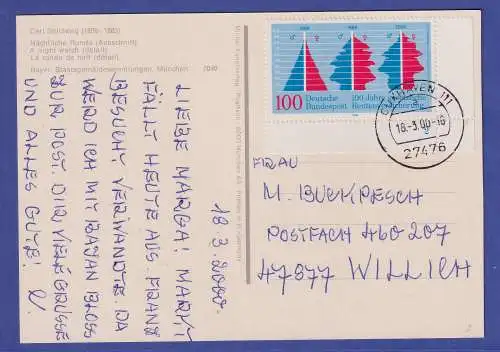 Carl Spitzweg (1808 - 1885)
Nächtliche Runde (Ausschnitt)
A night watch (detail)
La ronde de nuit (détail)
Bayer. Staatsgemäldesammlungen, München
18.3.2000.
LIEBE MARGA! MARKT
FÄLLT HEUTE AUS. FRANZ
BESUCHT VERWANDTE. DA
WERD ICH MIT BASJAN BLOSS
ZUR POST. DIR VIELE GRÜSSE
UND ALLES GUTE!
1889 1989
♂ ♀ ♂ ♀ ♂ ♀
100
Deutsche
Bundespost
100 Jahre
Rentenversicherung
CUXHAVEN 111
18.-3.00-16
27476
FRAU
M. BUCKPESCH
POSTFACH 460 207
47877 WILLICH